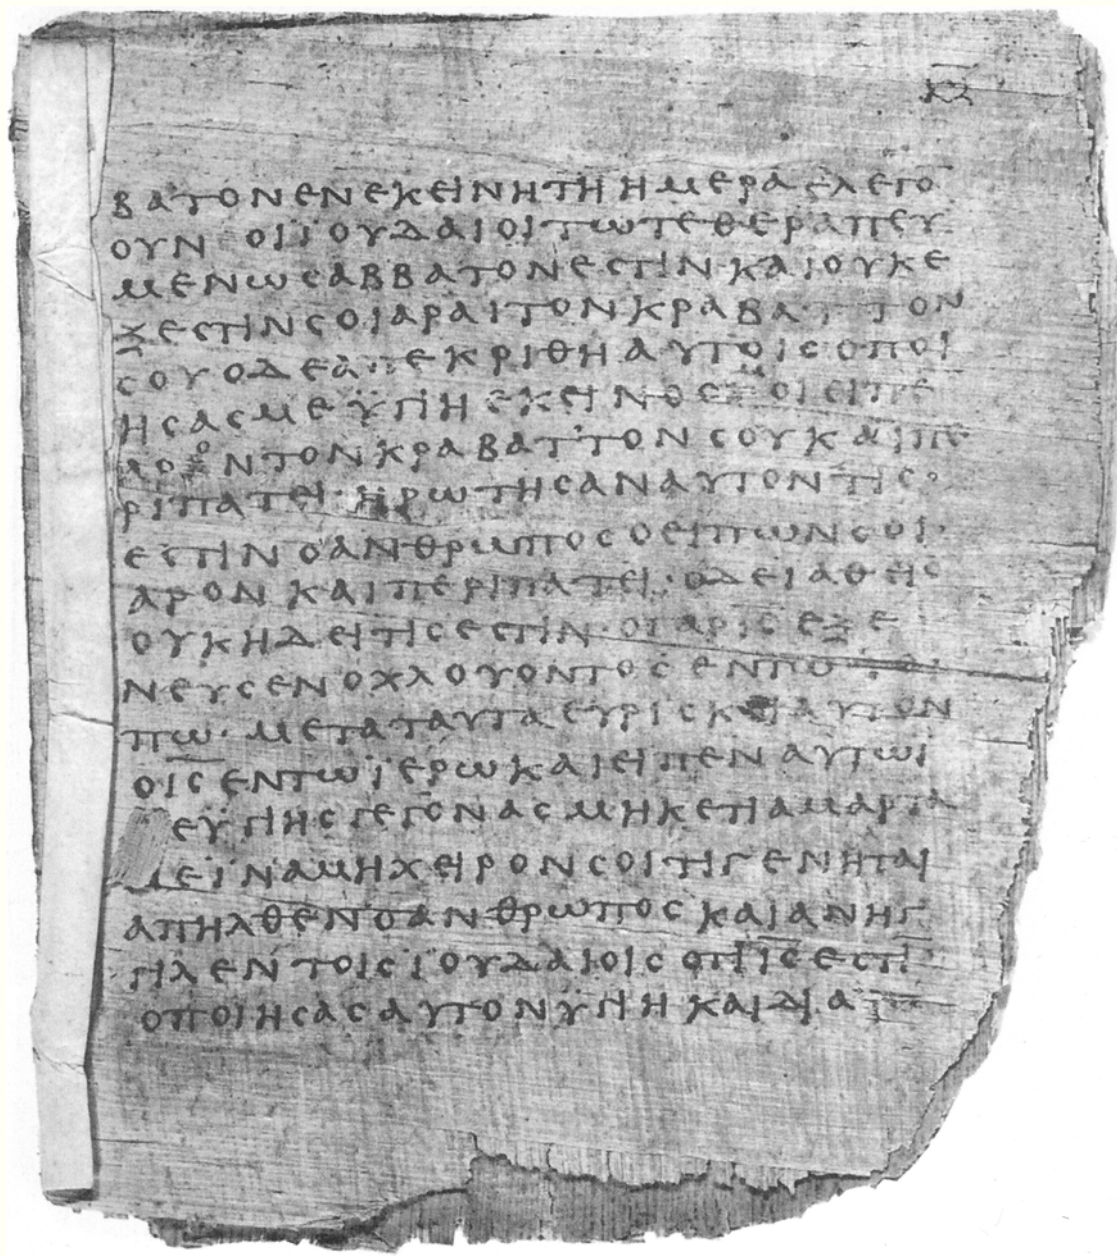 ΒΑΤΟΝΕΝΕΚΕΙΝΗΤΗΗΜΕΡΑΕΛΕΓΟ̅
ΟΥΝ ΟΙΪΟΥΔΑΙΟΙΤΩΤΕΘΕΡΑΠΕΥ
ΜΕΝΩϹΑΒΒΑΤΟΝΕϹΤΙΝ·ΚΑΙΟΥΚΕ
ΞΕϹΤΙΝϹΟΙΑΡΑΙΤΟΝΚΡΑΒΑΤΤΟΝ
ϹΟΥΟΔΕΑΠΕΚΡΙΘΗΑΥΤΟΙϹΟΠΟΙ
ΗϹΑϹΜΕΫΓΙΗΕΚΕΙΝΟϹΜΟΙΕΙΠΕ̅
ΑΡΟΝΤΟΝΚΡΑΒΑΤΤΟΝϹΟΥΚΑΙΠΕ
ΡΙΠΑΤΕΙ·ΗΡΩΤΗϹΑΝΑΥΤΟΝΤΙϹ
ΕϹΤΙΝΟΑΝΘΡΩΠΟϹΟΕΙΠΩΝϹΟΙ·
ΑΡΟΝΚΑΙΠΕΡΙΠΑΤΕΙ·ΟΔΕΙΑΘΕΙϹ
ΟΥΚΗΔΕΙΤΙϹΕϹΤΙΝ·ΟΓΑΡΙ̅Ϲ̅ΕΞΕ
ΝΕΥϹΕΝΟΧΛΟΥΟΝΤΟϹΕΝΤΩΤΟ
ΠΩ·ΜΕΤΑΤΑΥΤΑΕΥΡΙϹΚΕΙΑΥΤΟΝ
ΟΙ̅Ϲ̅ΕΝΤΩΪΕΡΩΚΑΙΕΙΠΕΝΑΥΤΩΙ
ΕΫΓΙΗϹΓΕΓΟΝΑϹΜΗΚΕΤΙΑΜΑΡΤΑ
ΝΕΪΝΑΜΗΧΕΙΡΟΝϹΟΙΤΙΓΕΝΗΤΑΙ
ΑΠΗΛΘΕΝΟΑΝΘΡΩΠΟϹΚΑΙΑΝΗΓ
ΓΙΛΕΝΤΟΙϹΪΟΥΔΑΙΟΙϹΟΤΙΙ̅Ϲ̅ΕϹΤΙ̅
ΟΠΟΙΗϹΑϹΑΥΤΟΝΫΓΙΗΚΑΙΔΙΑ